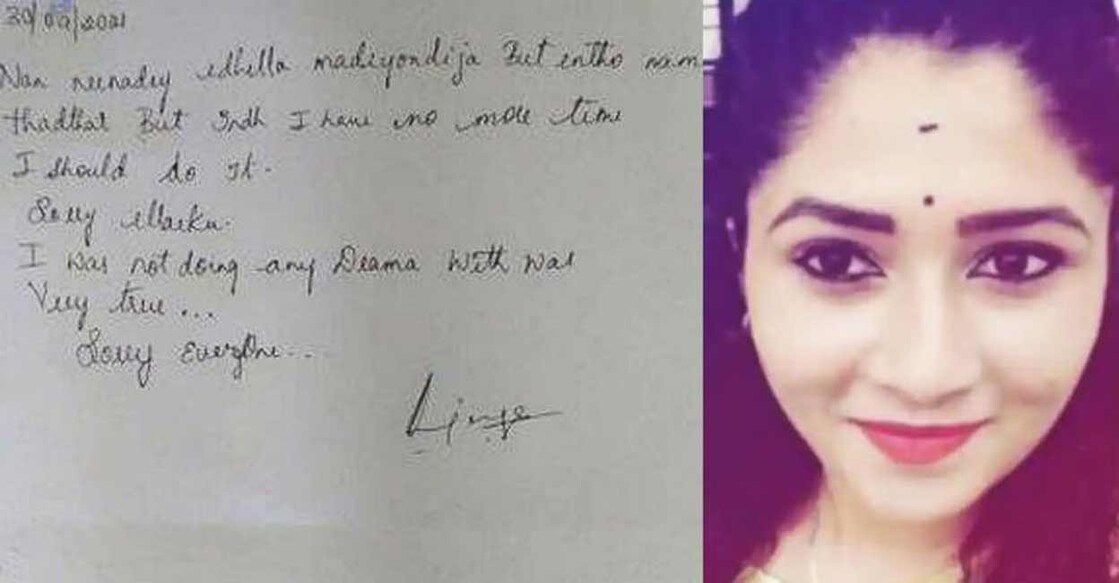 30/09/2021
Nan neenadey edhella madiyondija But entho nam
thadthal But Indh I have no more time
I should do it.
Sorry ellarku.
I was not doing any Drama With was
Very true...
Sorry Everyone...